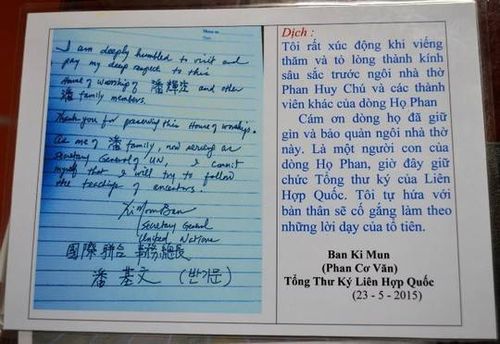 I am deeply humbled to visit and
pay my deep respect to this
House of Worship of 潘輝注 and other
潘 family members.
Thank you for preserving this House of worship.
As me of 潘 family, now serving as
Secretary General of UN, I commit
myself that I will try to follow
the teachings of ancestors.
Ki Moon Ban
Secretary General
United Nations
國際聯合 事務總長
潘 基 文 (반기문)
Dịch :
Tôi rất xúc động khi viếng
thăm và tỏ lòng thành kính
sâu sắc trước ngôi nhà thờ
Phan Huy Chú và các thành
viên khác của dòng Họ Phan
Cám ơn dòng họ đã giữ
gìn và bảo quản ngôi nhà thờ
này. Là một người con của
dòng Họ Phan, giờ đây giữ
chức Tổng thư ký của Liên
Hợp Quốc. Tôi tự hứa với
bản thân sẽ cố gắng làm theo
những lời dạy của tổ tiên.
Ban Ki Mun
(Phan Cơ Văn)
Tổng Thư Ký Liên Hợp Quốc
(23 - 5 - 2015)